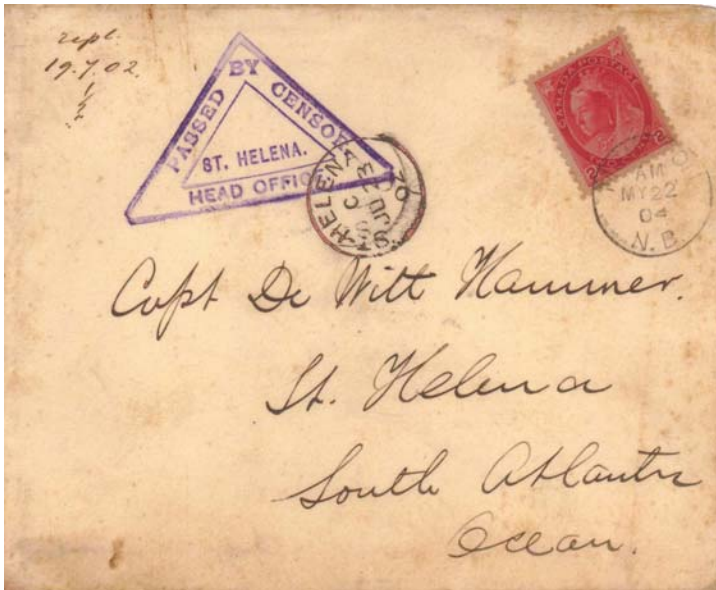 repl.
19.7.02.
PASSED BY CENSOR
ST. HELENA.
HEAD OFFICE
ST. HELENA
C
JU 23
02
CANADA POSTAGE
2
2
AM
MY 22
04
N.B.
Capt De Witt Hammer.
St. Helena
South Atlantic
Ocean.